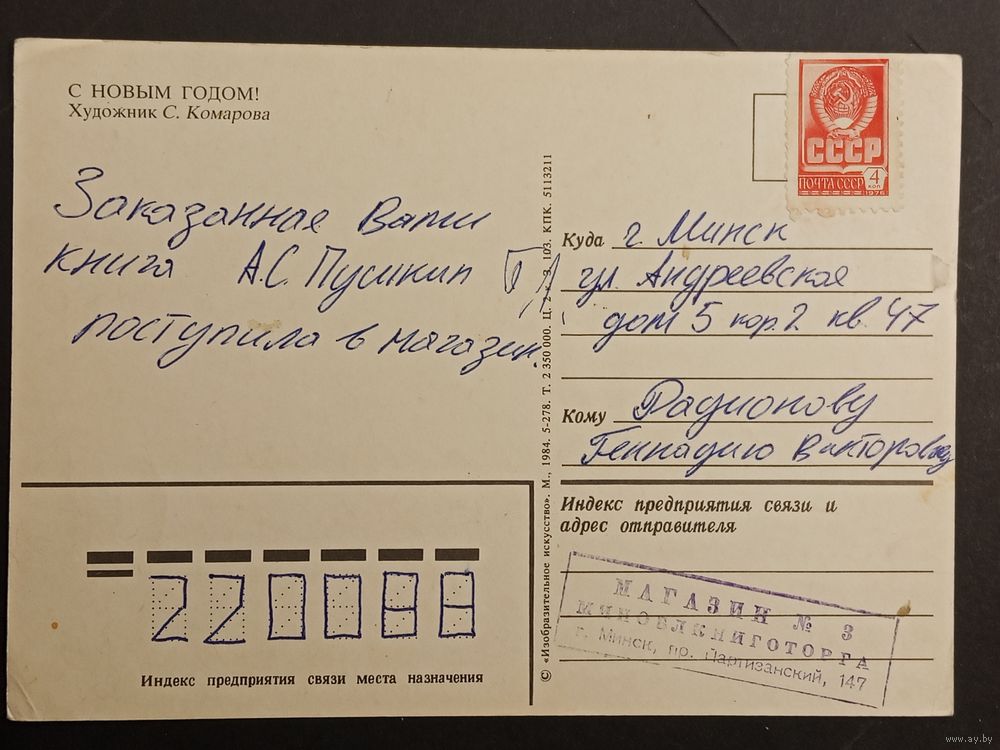 С НОВЫМ ГОДОМ!
Художник С. Комарова
Заказанная Вами
книга А.С. Пушкин
поступила в магазин.
СССР
ПОЧТА СССР
4
КОП
1976
Куда г. Минск
ул. Андреевская
дом 5 кор. 2 кв. 47
Кому Радионову
Геннадию Викторовичу
Индекс предприятия связи и
адрес отправителя
МАГАЗИН № 3
МИНОБЛКНИГОТОРГА
г. Минск, пр. Партизанский, 147
220088
Индекс предприятия связи места назначения
© «Изобразительное искусство». М., 1984. 5-278. Т. 2 350 000. Ц. 3. 103. КПК. 5113211
www.ay.by